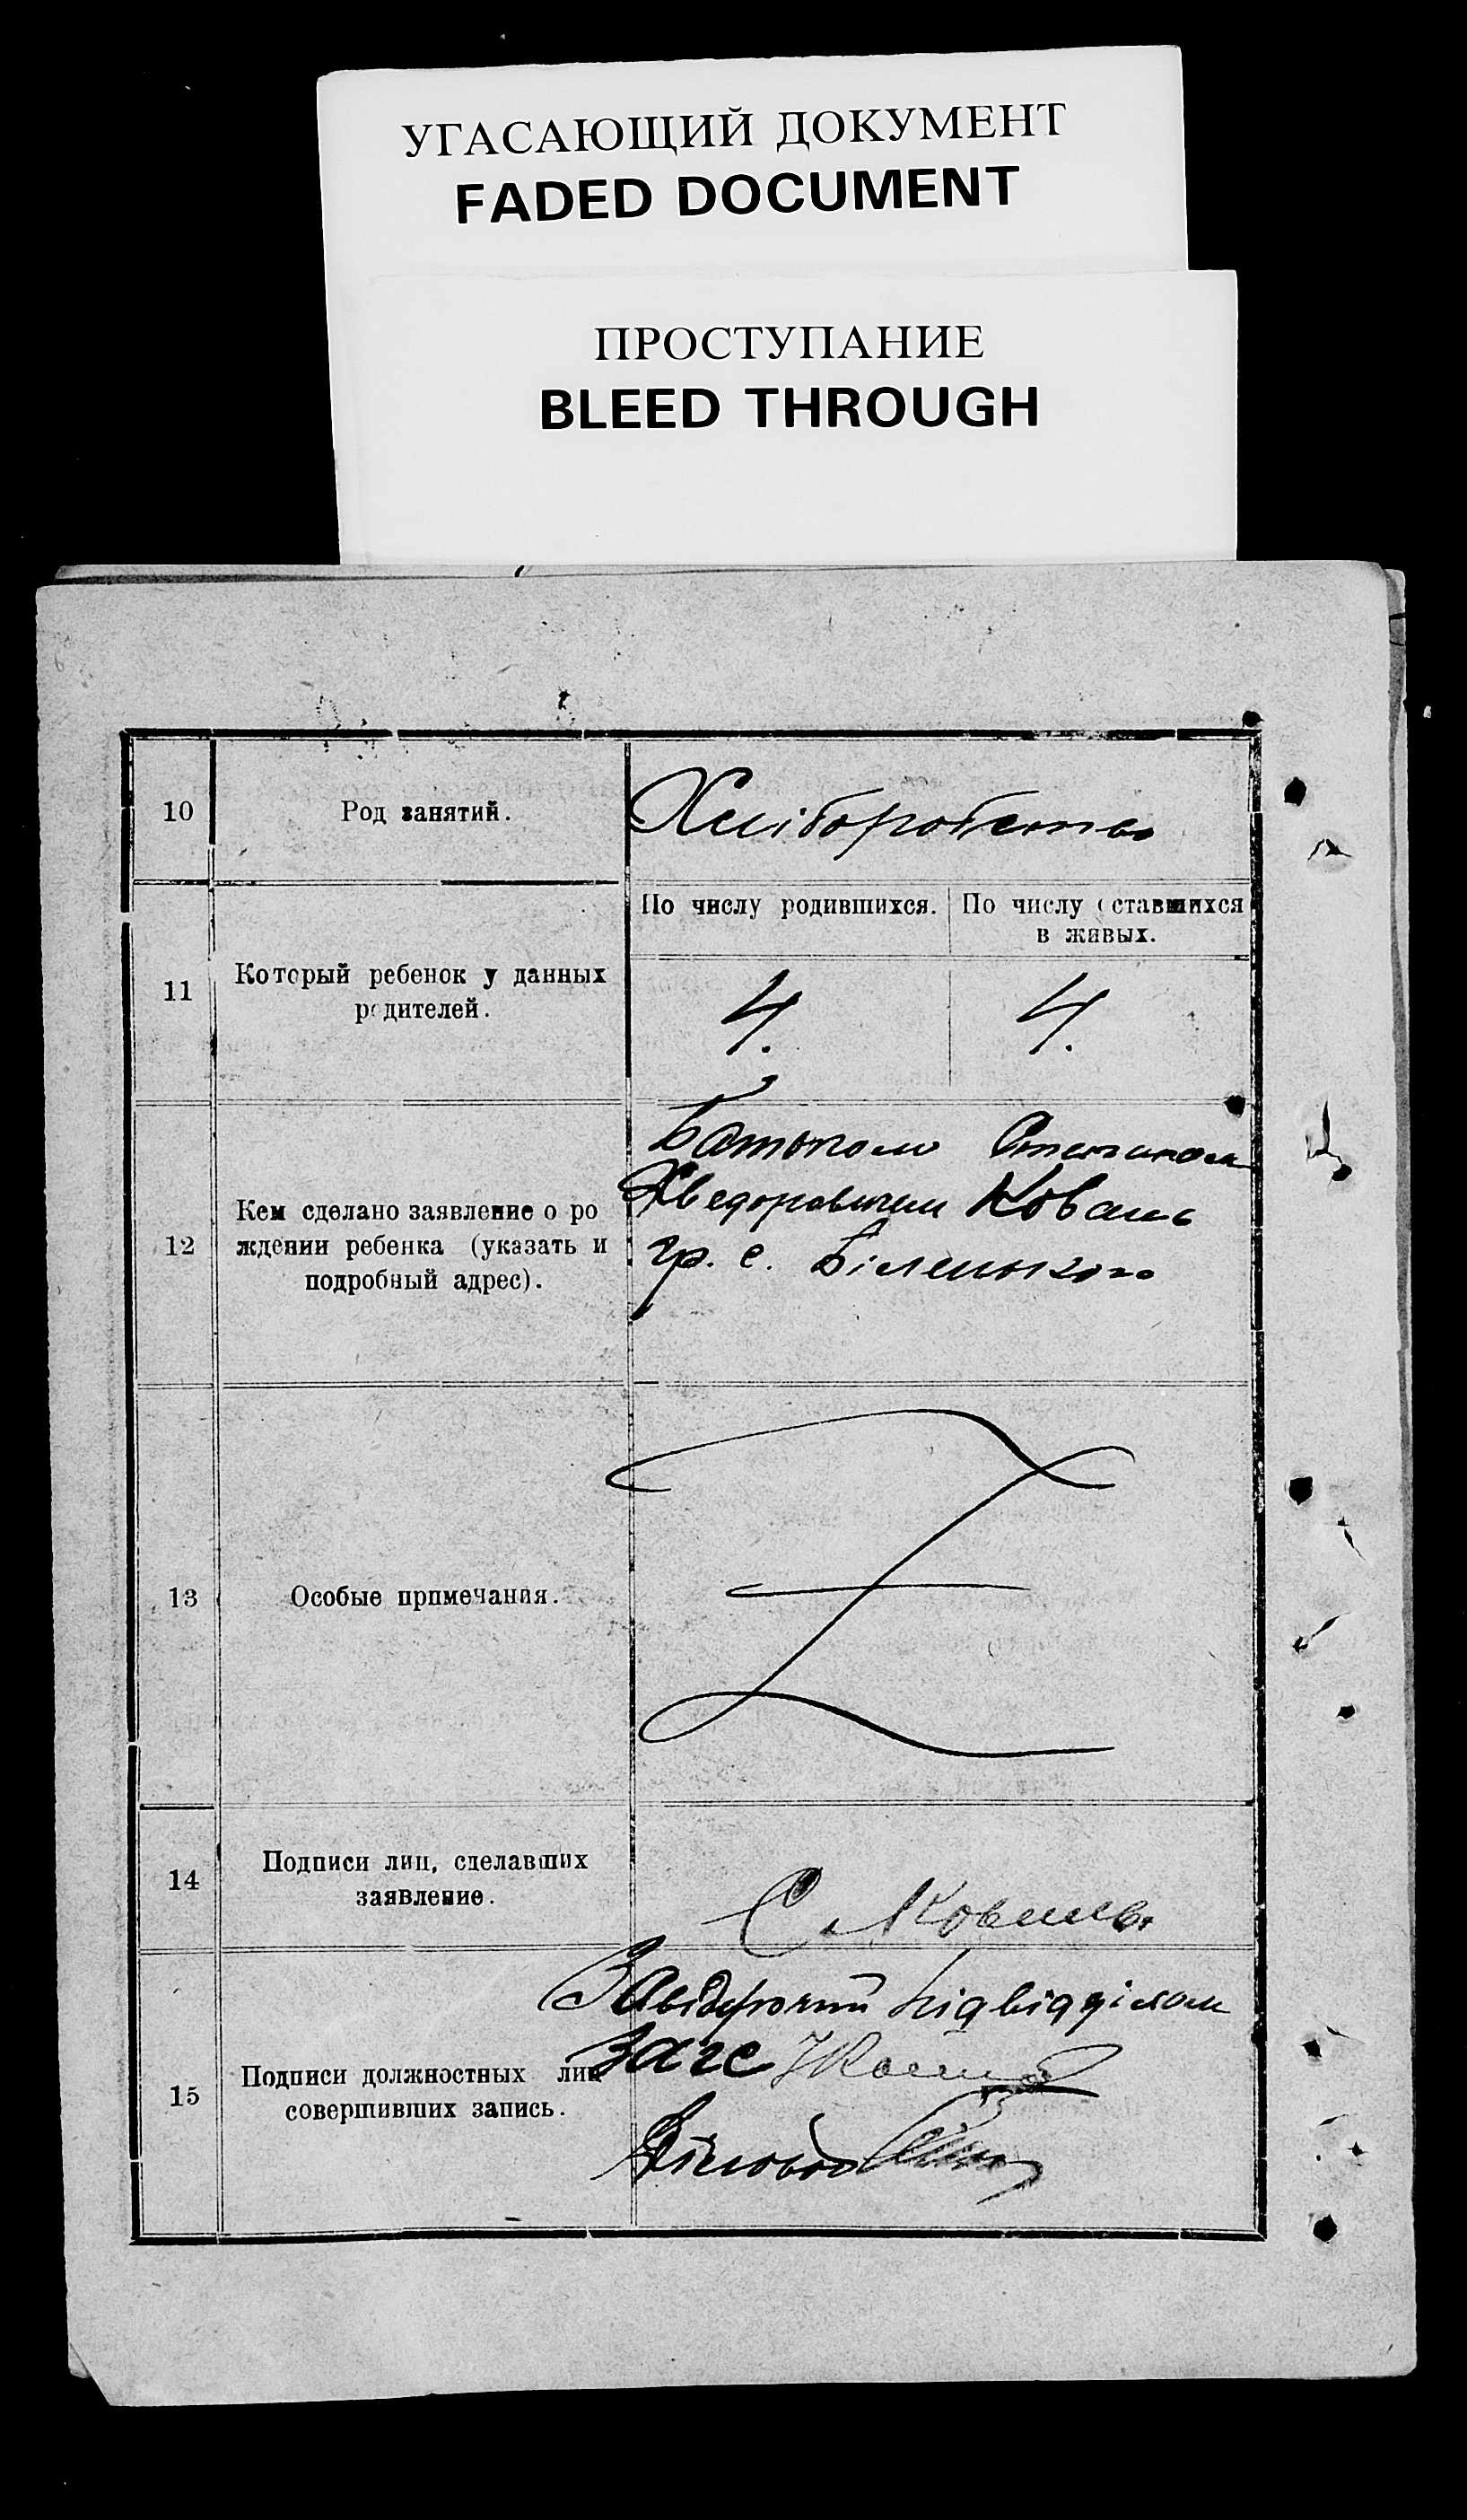 УГАСАЮЩИЙ ДОКУМЕНТ
FADED DOCUMENT
ПРОСТУПАНИЕ
BLEED THROUGH
10
Род занятий.
Хліборобство
11
Который ребенок у данных
родителей.
По числу родившихся.
По числу оставшихся
в живых.
4.
4.
12
Кем сделано заявление о ро
ждении ребенка (указать и
подробный адрес).
Батьком Степаном
Хведоровичем Коваль
гр. с. Біленького
13
Особые примечания.
14
Подписи лиц, сделавших
заявление.
С. Коваль
15
Подписи должностных лиц
совершивших запись.
Завідуючий підвідділом
Загс
Діловод